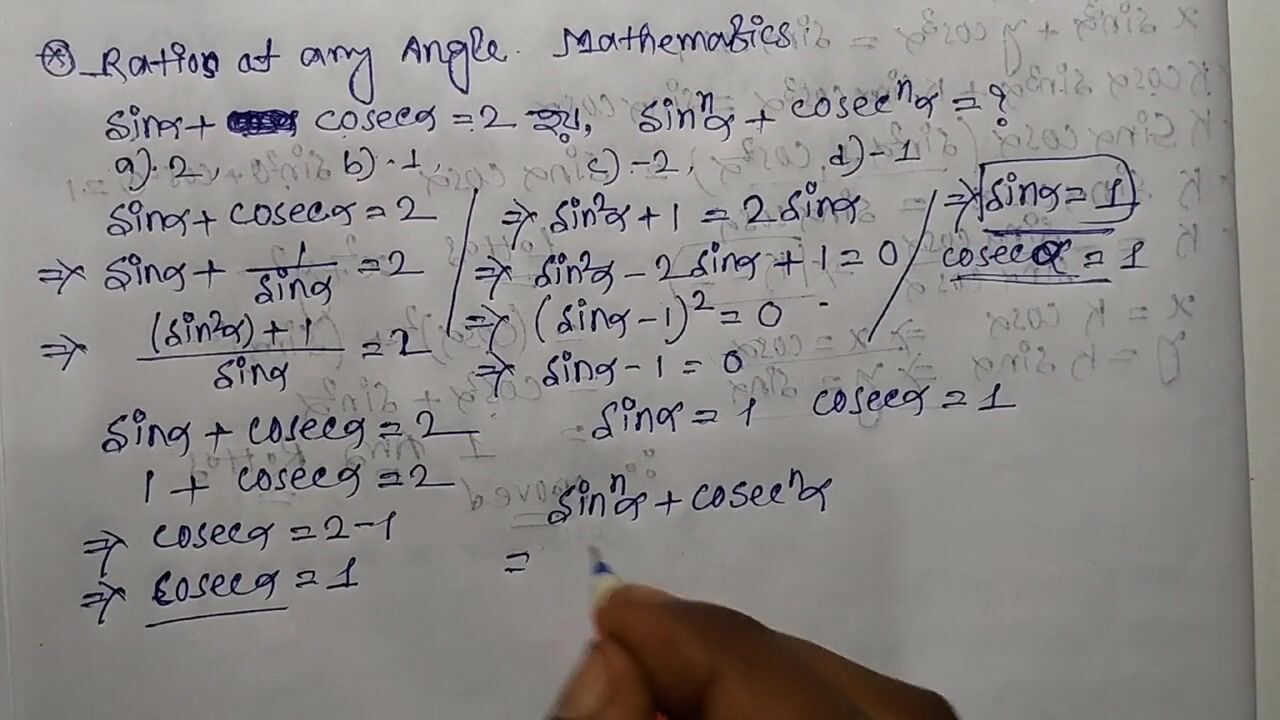 ⊗ Ratios at any Angle. Mathematics
sinα + cosecα = 2 হয়, sinⁿα + cosecⁿα = ?
a) 2, b) 1, c) -2, d) -1
sinα + cosecα = 2
⇒ sinα + 1/sinα = 2
⇒ (sin²α) + 1/sinα = 2
⇒ sin²α + 1 = 2 sinα
⇒ sin²α - 2 sinα + 1 = 0
⇒ (sinα - 1)² = 0
⇒ sinα - 1 = 0
⇒ sinα = 1
cosecα = 1
sinα + cosecα = 2
1 + cosecα = 2
⇒ cosecα = 2 - 1
⇒ cosecα = 1
sinα = 1 cosecα = 1
sinⁿα + cosecⁿα
=